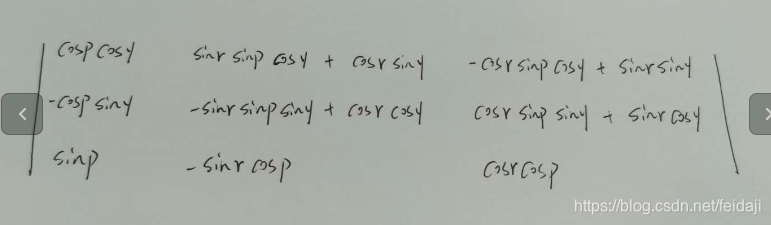 cosp cosy sinr sinp cosy + cosr siny -cosr sinp cosy + sinr siny
-cosp siny -sinr sinp siny + cosr cosy cosr sinp siny + sinr cosy
sinp -sinr cosp cosr cosp
https://blog.csdn.net/feidaji